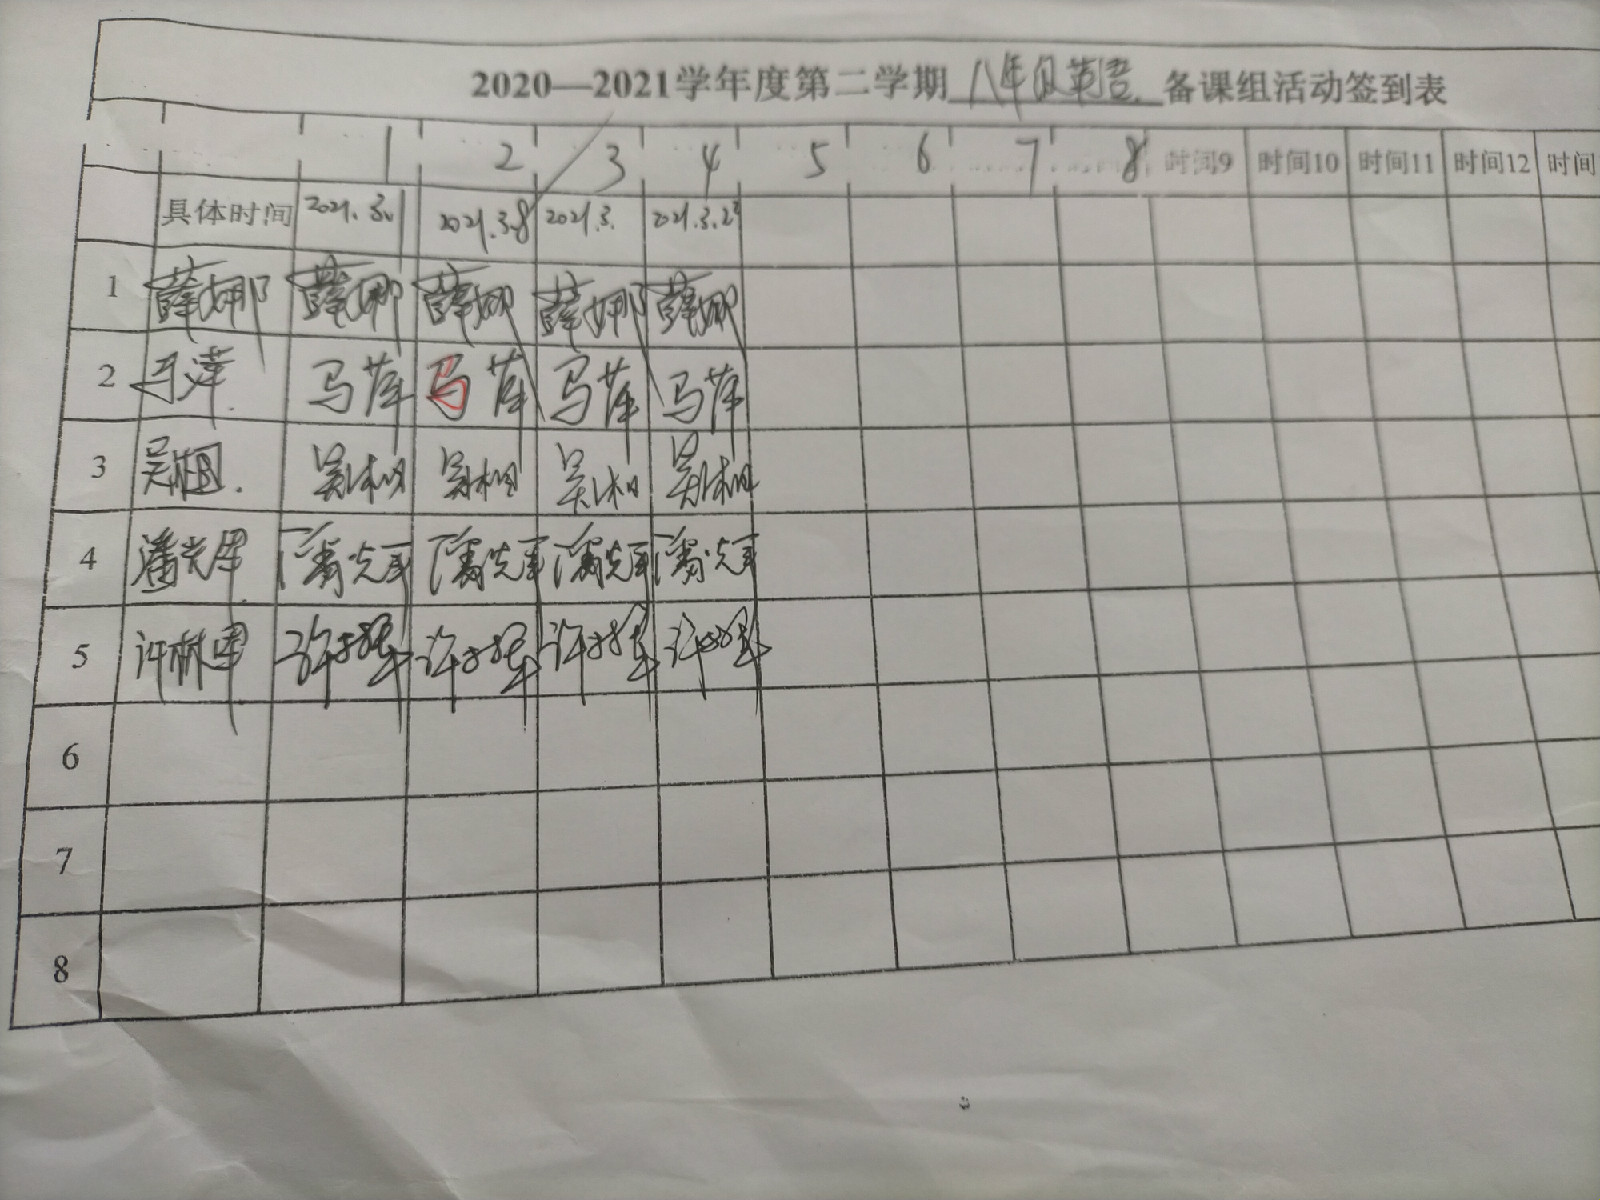 2020—2021学年度第二学期 八年级英语 备课组活动签到表
1 2 3 4 5 6 7 8 时间9 时间10 时间11 时间12 时间
具体时间 2021.3.1 2021.3.8 2021.3. 2021.3.2
1 薛娜 薛娜 薛娜 薛娜 薛娜
2 马萍 马萍 马萍 马萍 马萍
3 吴 吴 吴 吴 吴
4 潘光军 潘光军 潘光军 潘光军 潘光军
5 许林军 许 许 许 许
6
7
8